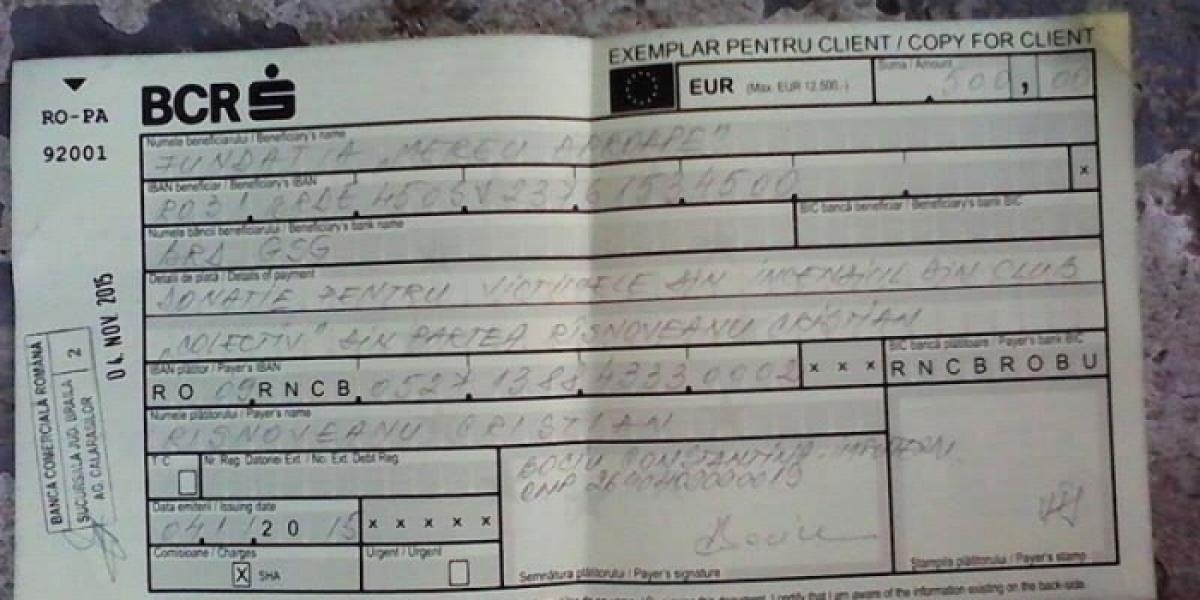 EXEMPLAR PENTRU CLIENT / COPY FOR CLIENT
RO-PA
92001
BCR
EUR (Max. EUR 12.500.-)
Suma / Amount
500,00
Numele beneficiarului / Beneficiary's name
FUNDATIA „MEREU APROAPE"
IBAN beneficiar / Beneficiary's IBAN
x
Numele băncii beneficiarului / Beneficiary's bank name
BIC bancă beneficiar / Beneficiary's bank BIC
BRD GSG
Detalii de plată / Details of payment
DONATIE PENTRU VICTIMELE DIN INCENDIUL DIN CLUB
„COLECTIV" DIN PARTEA RISNOVEANU CRISTIAN
IBAN plătitor / Payer's IBAN
BIC bancă plătitoare / Payer's bank BIC
RO 09 RNCB 0527 1388 4333 0002 x x x
RNCBROBU
Numele plătitorului / Payer's name
RISNOVEANU CRISTIAN
T C
Nr. Reg. Datoriei Ext. / No. Ext. Debt Reg.
BOCIU CONSTANTINA
CNP
Data emiterii / Issuing date
04 11 2015 x x x x x
Comisioane / Charges
X SHA
Urgent / Urgent
Semnătura plătitorului / Payer's signature
Ştampila plătitorului / Payer's stamp
I certify that I am aware of the information existing on the back-side.
BANCA COMERCIALA ROMANA
SUCURSALA JUD. BRAILA 2
AG. CALARASILOR
04. NOV. 2015